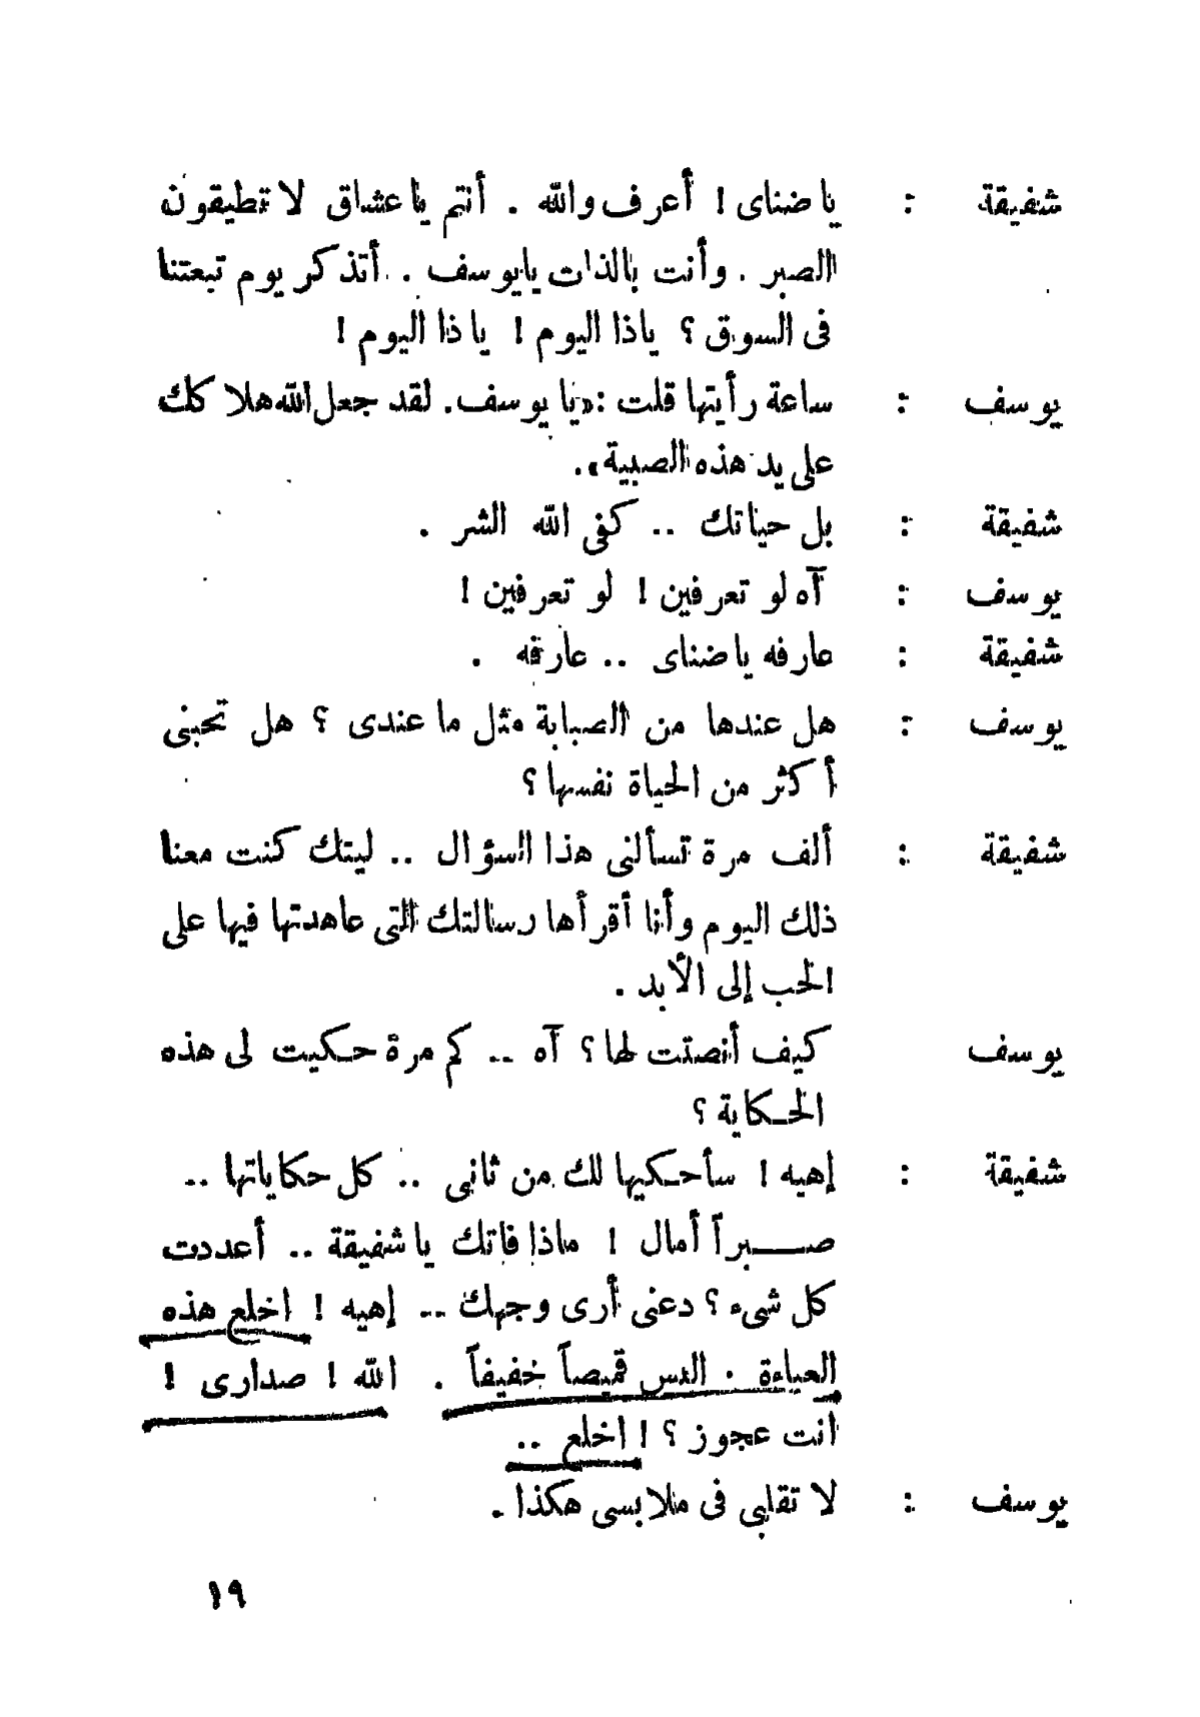 شفيقة : يا ضناى ! أعرف والله . أنتم يا عشاق لا تطيقون
الصبر . وأنت بالذات يايوسف . . أتذكر يوم تبعتنا
فى السوق ؟ ياذا اليوم ! يا ذا اليوم !
يوسف : ساعة رأيتها قلت : «يا يوسف . لقد جعل الله هلاكك
على يد هذه الصبية» .
شفيقة : بل حياتك .. كفى الله الشر .
يوسف : آه لو تعرفين ! لو تعرفين !
شفيقة : عارفه يا ضناى .. عارفه .
يوسف : هل عندها من الصبابة مثل ما عندى ؟ هل تحبنى
أكثر من الحياة نفسها ؟
شفيقة : ألف مرة تسألنى هذا السؤال .. ليتك كنت معنا
ذلك اليوم وأنا أقرأها رسالتك التى عاهدتها فيها على
الحب إلى الأبد .
يوسف كيف أنصتت لها ؟ آه .. كم مرة حكيت لى هذه
الحكاية ؟
شفيقة : إهيه ! سأحكيها لك من ثانى .. كل حكاياتها ..
صبراً أمال ! ماذا فاتك يا شفيقة .. أعددت
كل شىء ؟ دعنى أرى وجهك .. إهيه ! اخلع هذه
العباءة . البس قميصاً خفيفاً . الله ! صدارى !
أنت عجوز ؟ ! اخلع ..
يوسف : لا تقلبى فى ملابسى هكذا .
١٩